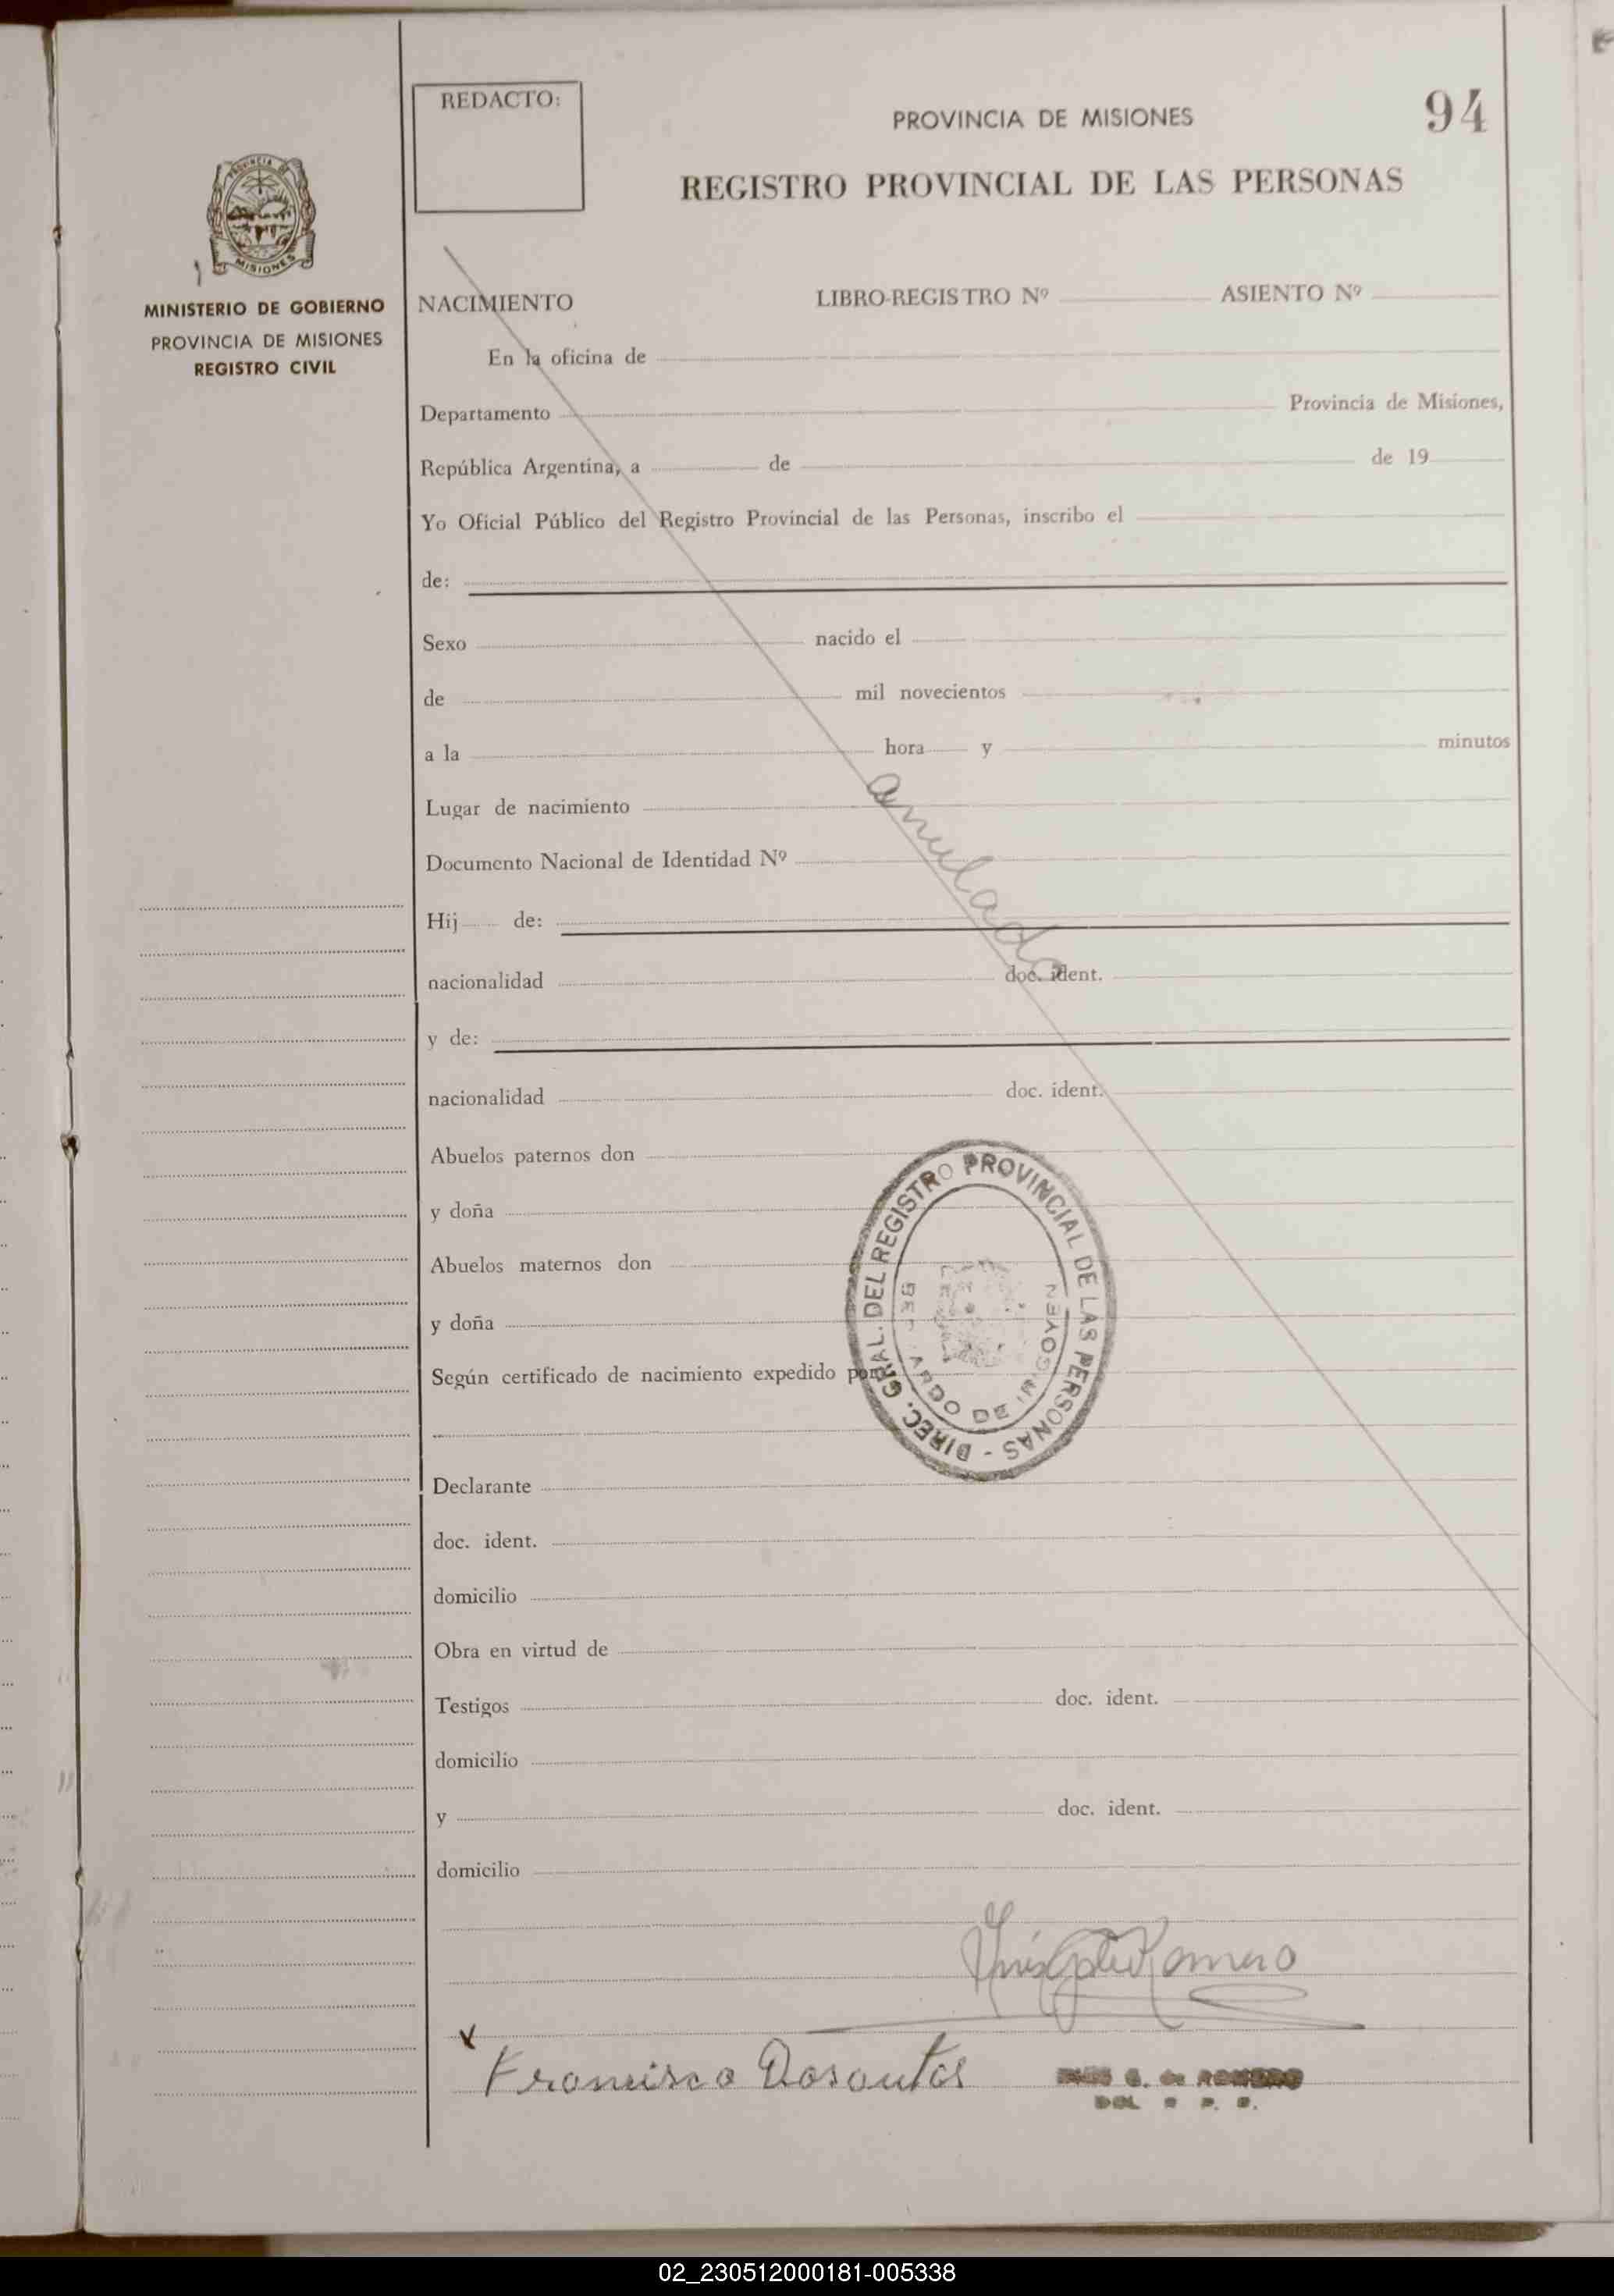 REDACTO:
PROVINCIA DE MISIONES
94
REGISTRO PROVINCIAL DE LAS PERSONAS
PROVINCIA DE
MISIONES
MINISTERIO DE GOBIERNO
PROVINCIA DE MISIONES
REGISTRO CIVIL
NACIMIENTO LIBRO-REGISTRO Nº ASIENTO Nº
En la oficina de
Departamento Provincia de Misiones,
República Argentina, a de de 19
Yo Oficial Público del Registro Provincial de las Personas, inscribo el
de:
Sexo nacido el
de mil novecientos
a la hora y minutos
anulado
Lugar de nacimiento
Documento Nacional de Identidad Nº
Hij de:
nacionalidad doc. ident.
y de:
nacionalidad doc. ident.
Abuelos paternos don
y doña
Abuelos maternos don
y doña
Según certificado de nacimiento expedido por
DIREC. GRAL. DEL REGISTRO PROVINCIAL DE LAS PERSONAS -
ARDO DE IRIGOYEN
Declarante
doc. ident.
domicilio
Obra en virtud de
Testigos doc. ident.
domicilio
y doc. ident.
domicilio
Romero
Francisco Dosantos
G. de ROMERO
02_230512000181-005338